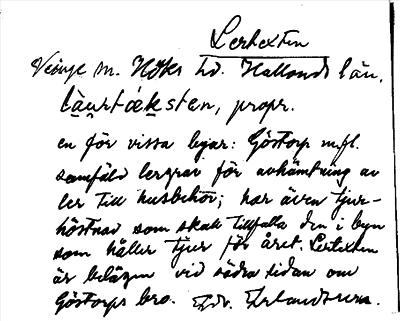 Lertexten
Veinge sn. Höks hd. Hallands län.
lä̀u̯rtǽksten, propr.
en för vissa byar: Göstorp m.fl.
samfäld lergrav för avhämtning av
ler till husbehov; har även tjur-
höstnad som skall tillfalla den i byn
som håller tjur för året. Lertexten
är belägen vid södra sidan om
Göstorps bro. Edv. Erlandsson.